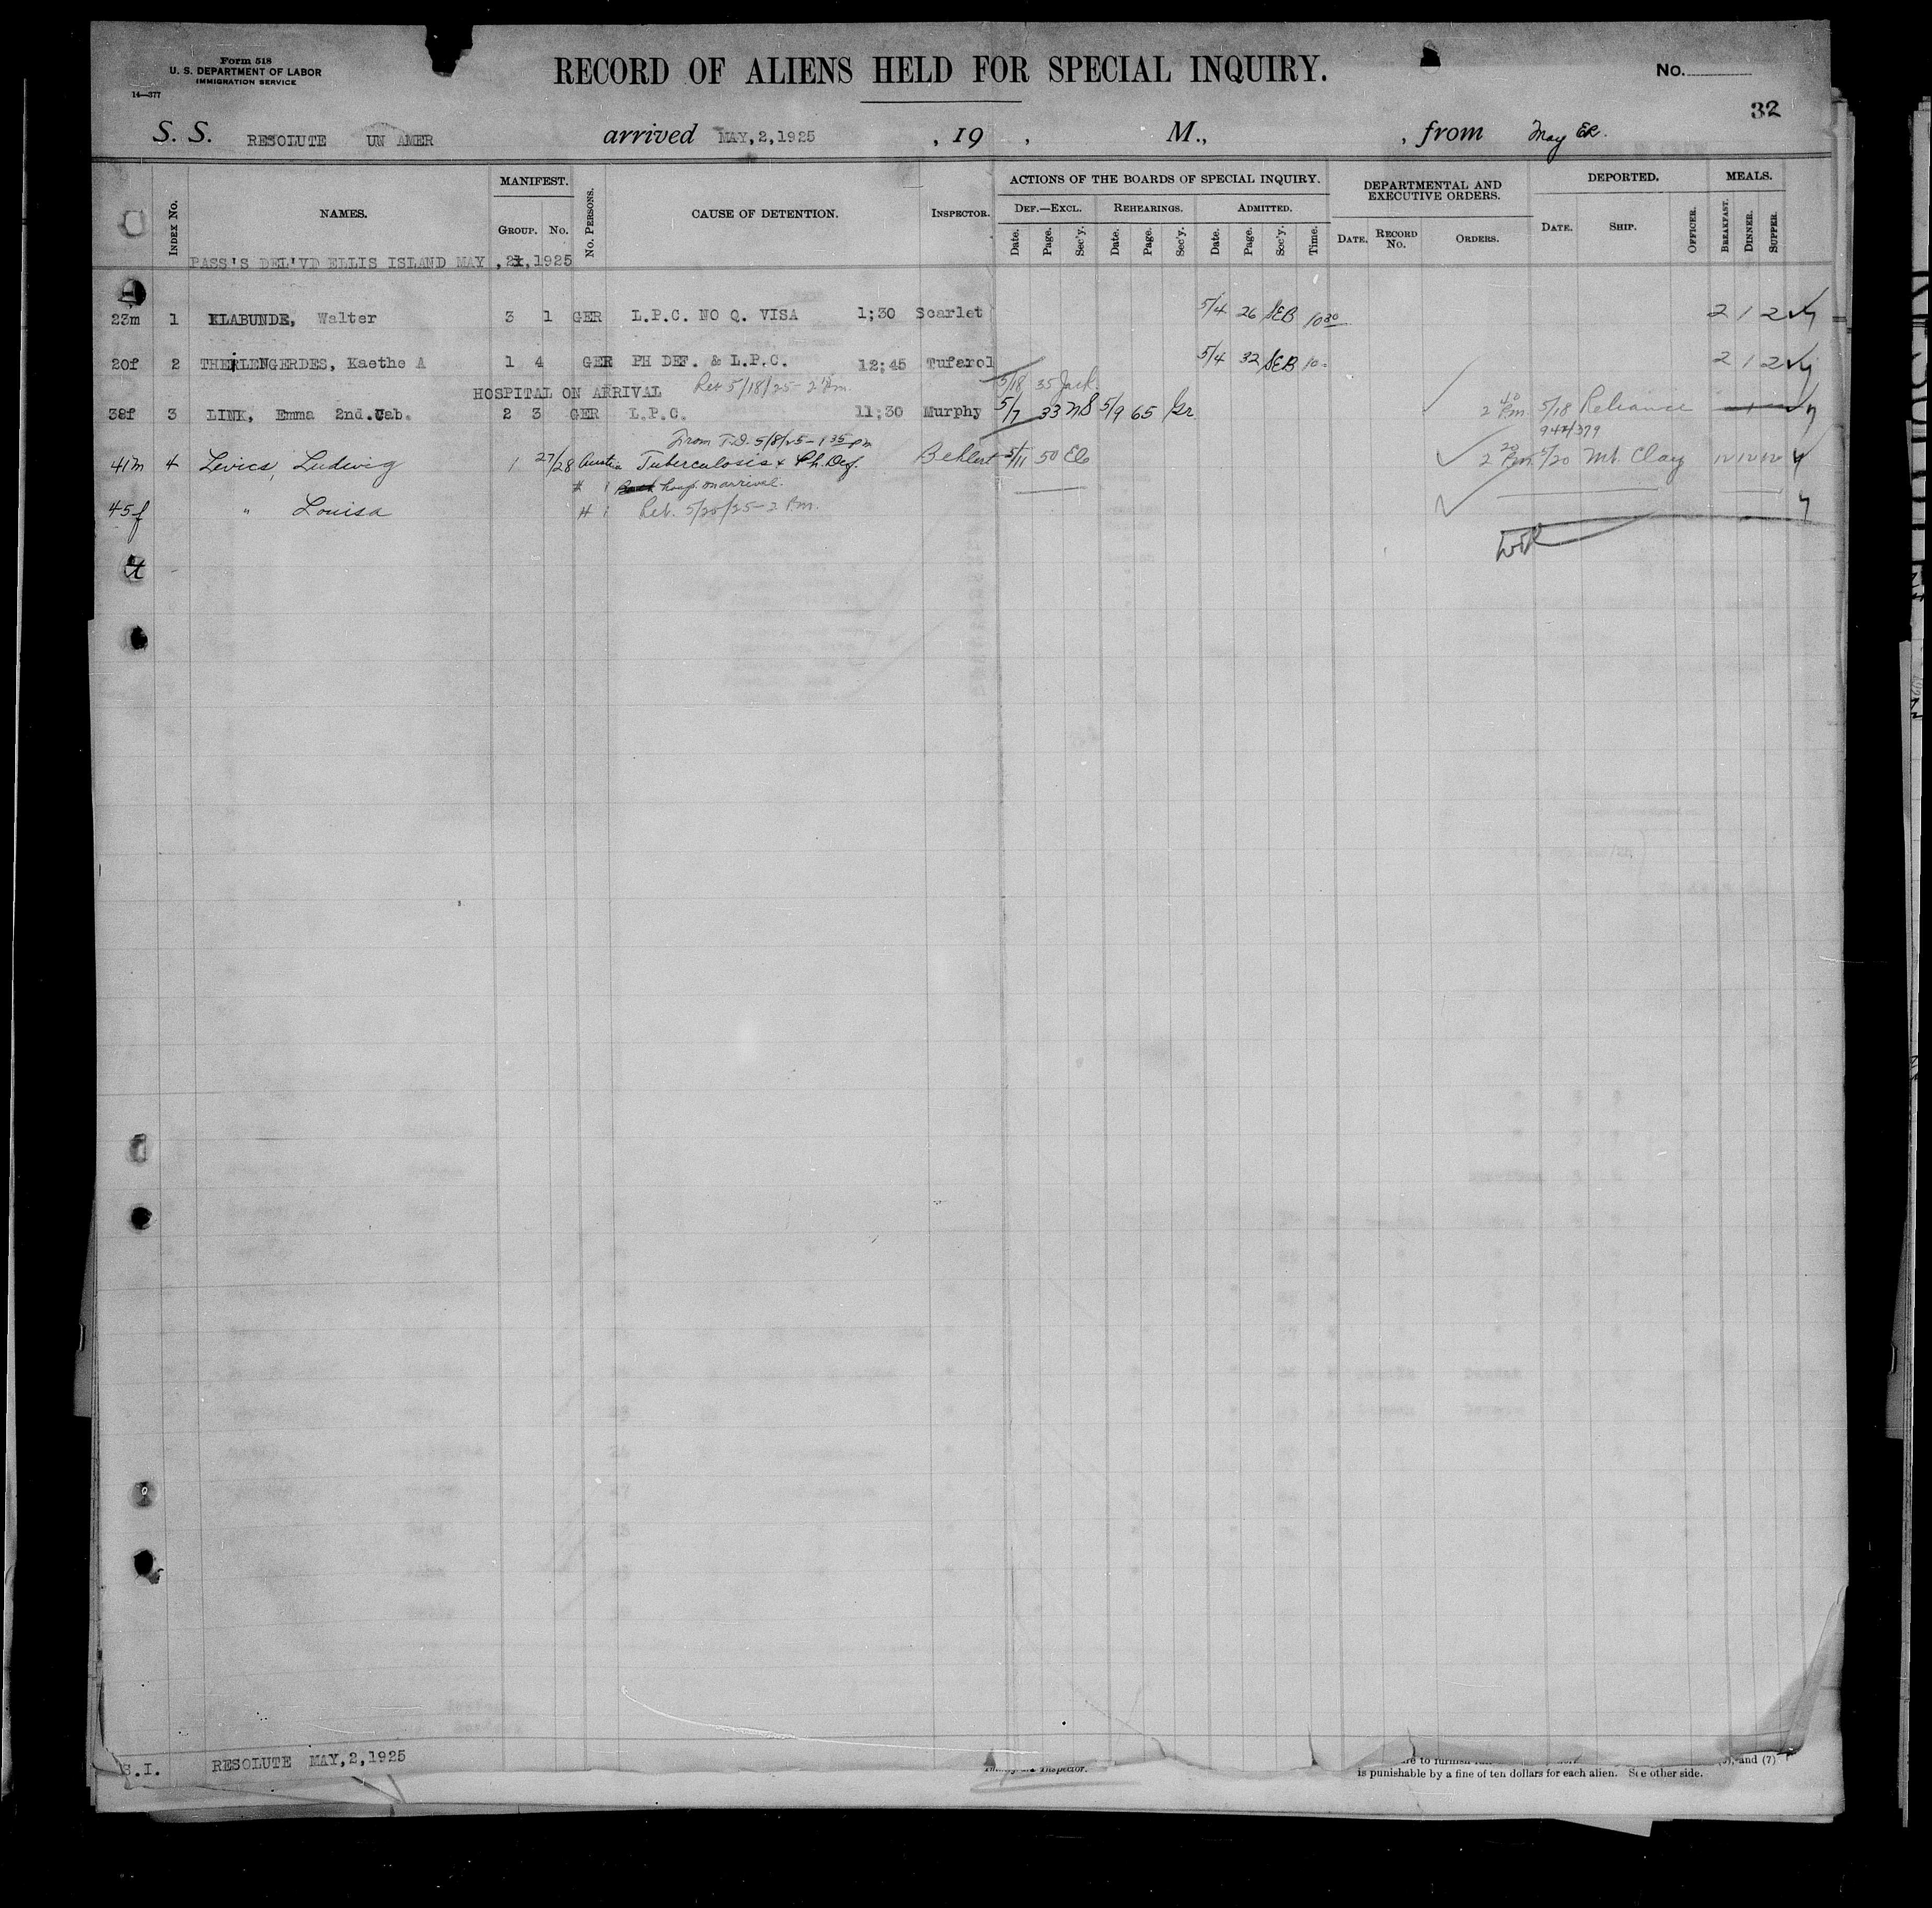 Form 518
U. S. DEPARTMENT OF LABOR
IMMIGRATION SERVICE
14—377
RECORD OF ALIENS HELD FOR SPECIAL INQUIRY.
No.
32
S. S. RESOLUTE UN AMER arrived MAY,2,1925 , 19 , M., , from May ER.
INDEX No. NAMES. MANIFEST. GROUP. No. No. PERSONS. CAUSE OF DETENTION. INSPECTOR. ACTIONS OF THE BOARDS OF SPECIAL INQUIRY. DEPARTMENTAL AND EXECUTIVE ORDERS. DEPORTED. MEALS.
DEF.—EXCL. REHEARINGS. ADMITTED.
Date. Page. Sec'y. Date. Page. Sec'y. Date. Page. Sec'y. Time. DATE. RECORD No. ORDERS. DATE. SHIP. OFFICER. BREAKFAST. DINNER. SUPPER.
PASS'S DEL'VD ELLIS ISLAND MAY ,2,1925
23m 1 KLABUNDE, Walter 3 1 GER L.P.C. NO Q. VISA 1;30 Scarlet 5/4 26 SEB 10 30 2 1 2
20f 2 THEILENGERDES, Kaethe A 1 4 GER PH DEF. & L.P.C. 12;45 Tufarol 5/4 32 SEB 10 2 1 2
HOSPITAL ON ARRIVAL Ret 5/18/25- 2 Pm. 5/18 35 Jack.
38f 3 LINK, Emma 2nd.Cab. 2 3 GER L.P.C. 11;30 Murphy 5/7 33 NS 5/9 65 Gr. 2 40 Pm. 5/18 Reliance
From T.D. 5/8/25-1 35 Pm
41m 4 Levics, Ludwig 1 27/28 Austria Tuberculosis & Ph. Def. Behlert 5/11 50 Eb 2 20 Pm. 5/20 Mt. Clay
# 1 hosp. on arrival.
45f " Louisa # 1 Ret. 5/20/25-2 P.m.
S.I. RESOLUTE MAY,2,1925
Inspector.
and (7)
is punishable by a fine of ten dollars for each alien. See other side.